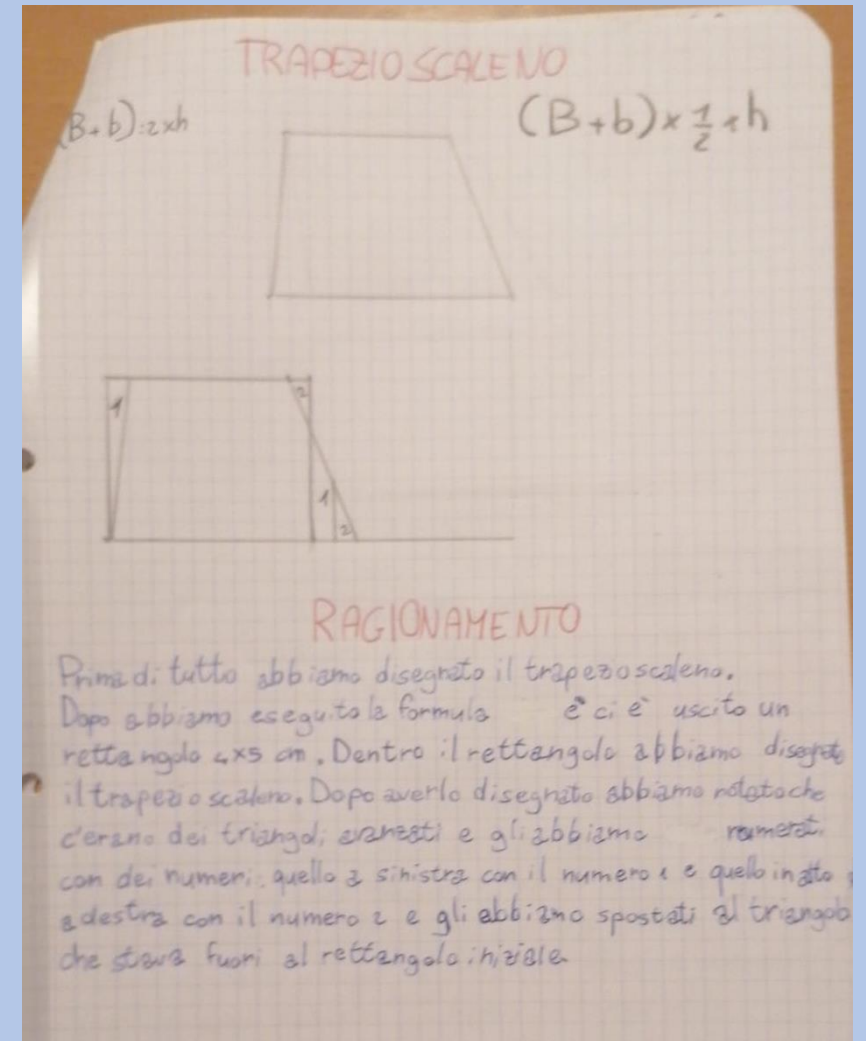 TRAPEZIO SCALENO
(B+b):2xh
(B+b)x 1/2 xh
1
2
1
2
RAGIONAMENTO
Prima di tutto abbiamo disegnato il trapezo scaleno.
Dopo abbiamo eseguito la formula e ci è uscito un
rettangolo 4x5 cm. Dentro il rettangolo abbiamo disegnato
il trapezio scaleno. Dopo averlo disegnato abbiamo notato che
c'erano dei triangoli avanzati e gli abbiamo numerati
con dei numeri: quello a sinistra con il numero 1 e quello in alto
a destra con il numero 2 e gli abbiamo spostati al triangolo
che stava fuori al rettangolo iniziale